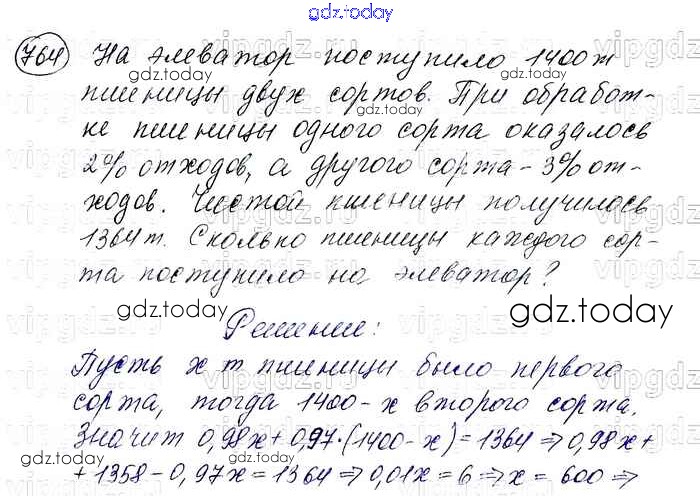 gdz.today
764 На элеватор поступило 1400 т
gdz.today gdz.today
пшеницы двух сортов. При обработ-
ке пшеницы одного сорта оказалось
2% отходов, а другого сорта - 3% от-
ходов. Чистой пшеницы получилось
1364 т. Сколько пшеницы каждого сор-
та поступило на элеватор?
gdz.today gdz.today
Решение:
Пусть x т пшеницы было первого
сорта, тогда 1400 - x второго сорта.
gdz.today gdz.today
Значит 0,98x + 0,97·(1400 - x) = 1364 ⇒ 0,98x +
+ 1358 - 0,97x = 1364 ⇒ 0,01x = 6 ⇒ x = 600 ⇒